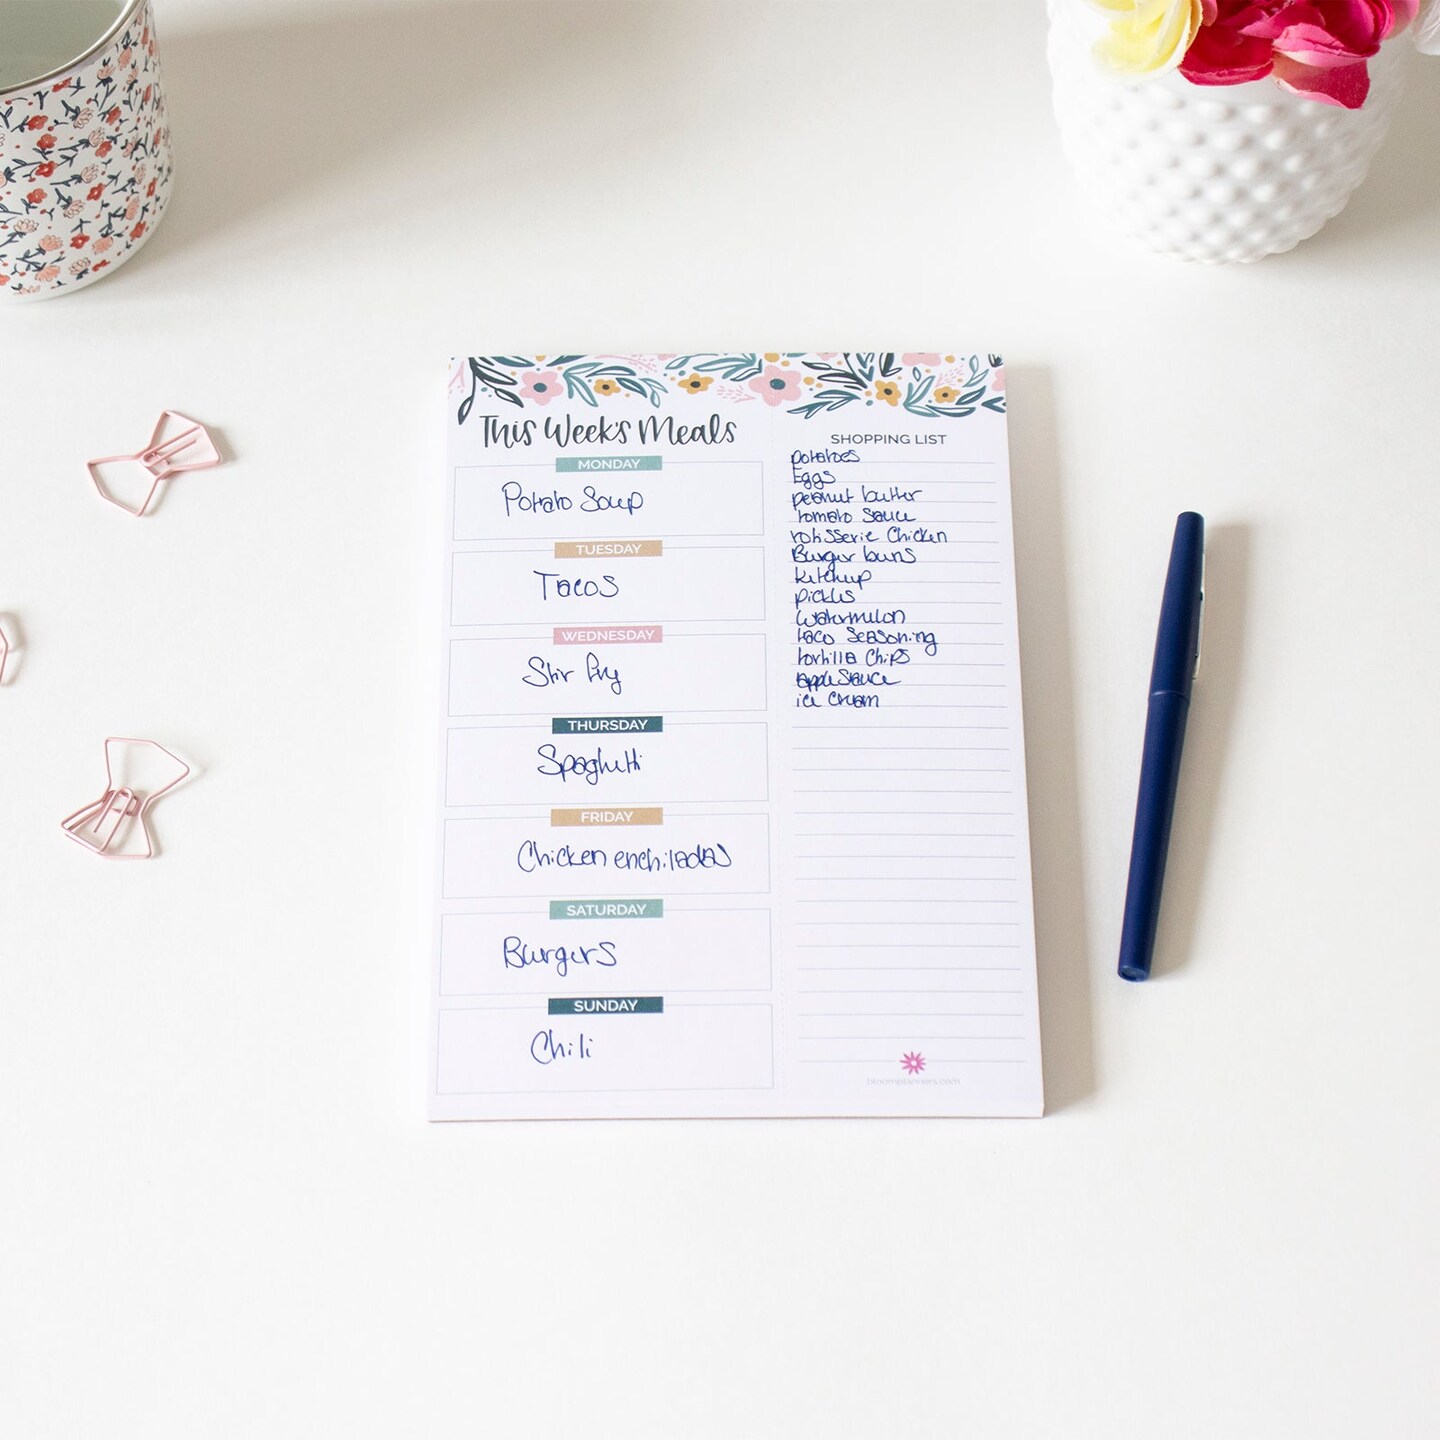 This Week's Meals
MONDAY
Potato Soup
TUESDAY
Tacos
WEDNESDAY
Stir fry
THURSDAY
Spaghetti
FRIDAY
Chicken enchiladas
SATURDAY
Burgers
SUNDAY
Chili
SHOPPING LIST
potatoes
Eggs
peanut butter
tomato Sauce
rotisserie Chicken
Burger buns
ketchup
pickles
watermelon
taco Seasoning
tortilla Chips
apple Sauce
ice cream
bloomplanners.com